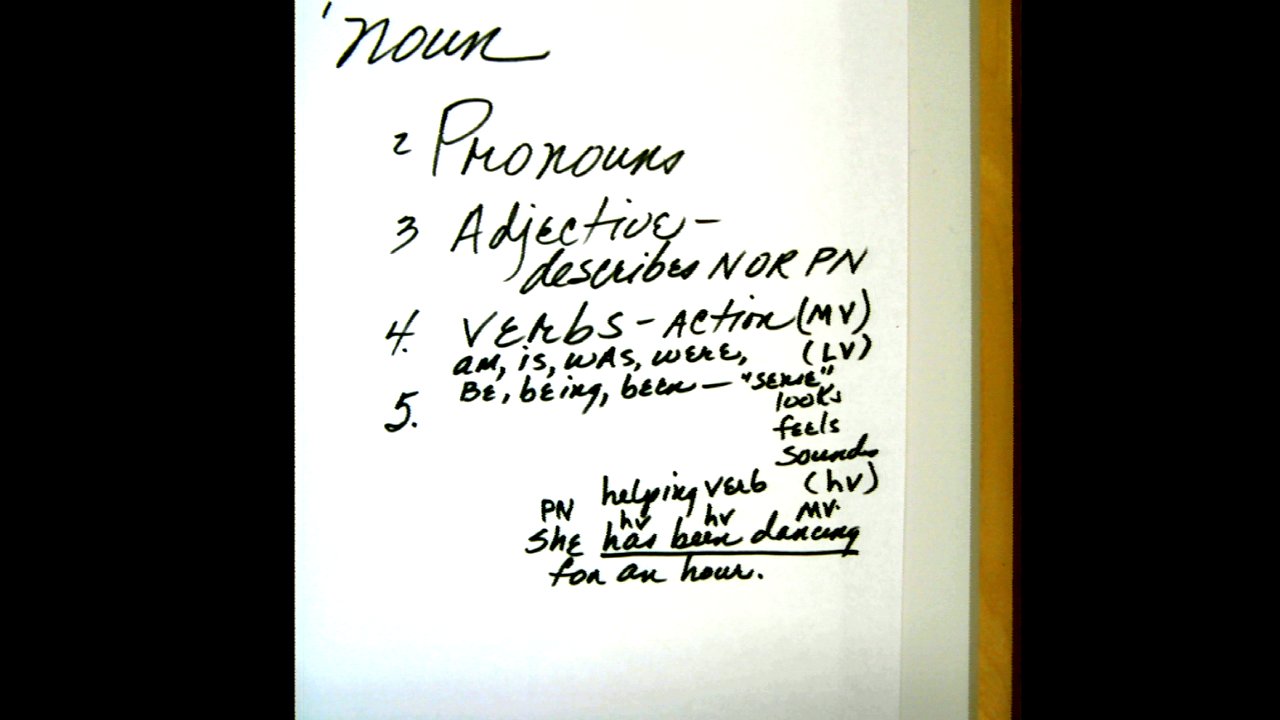 1 Noun
2 Pronouns
3 Adjective -
describes N OR PN
4. Verbs - Action (MV)
am, is, was, were, (LV)
Be, being, been — "sense"
5. looks
feels
sounds
helping verb (hv)
PN hv hv MV.
She has been dancing
for an hour.